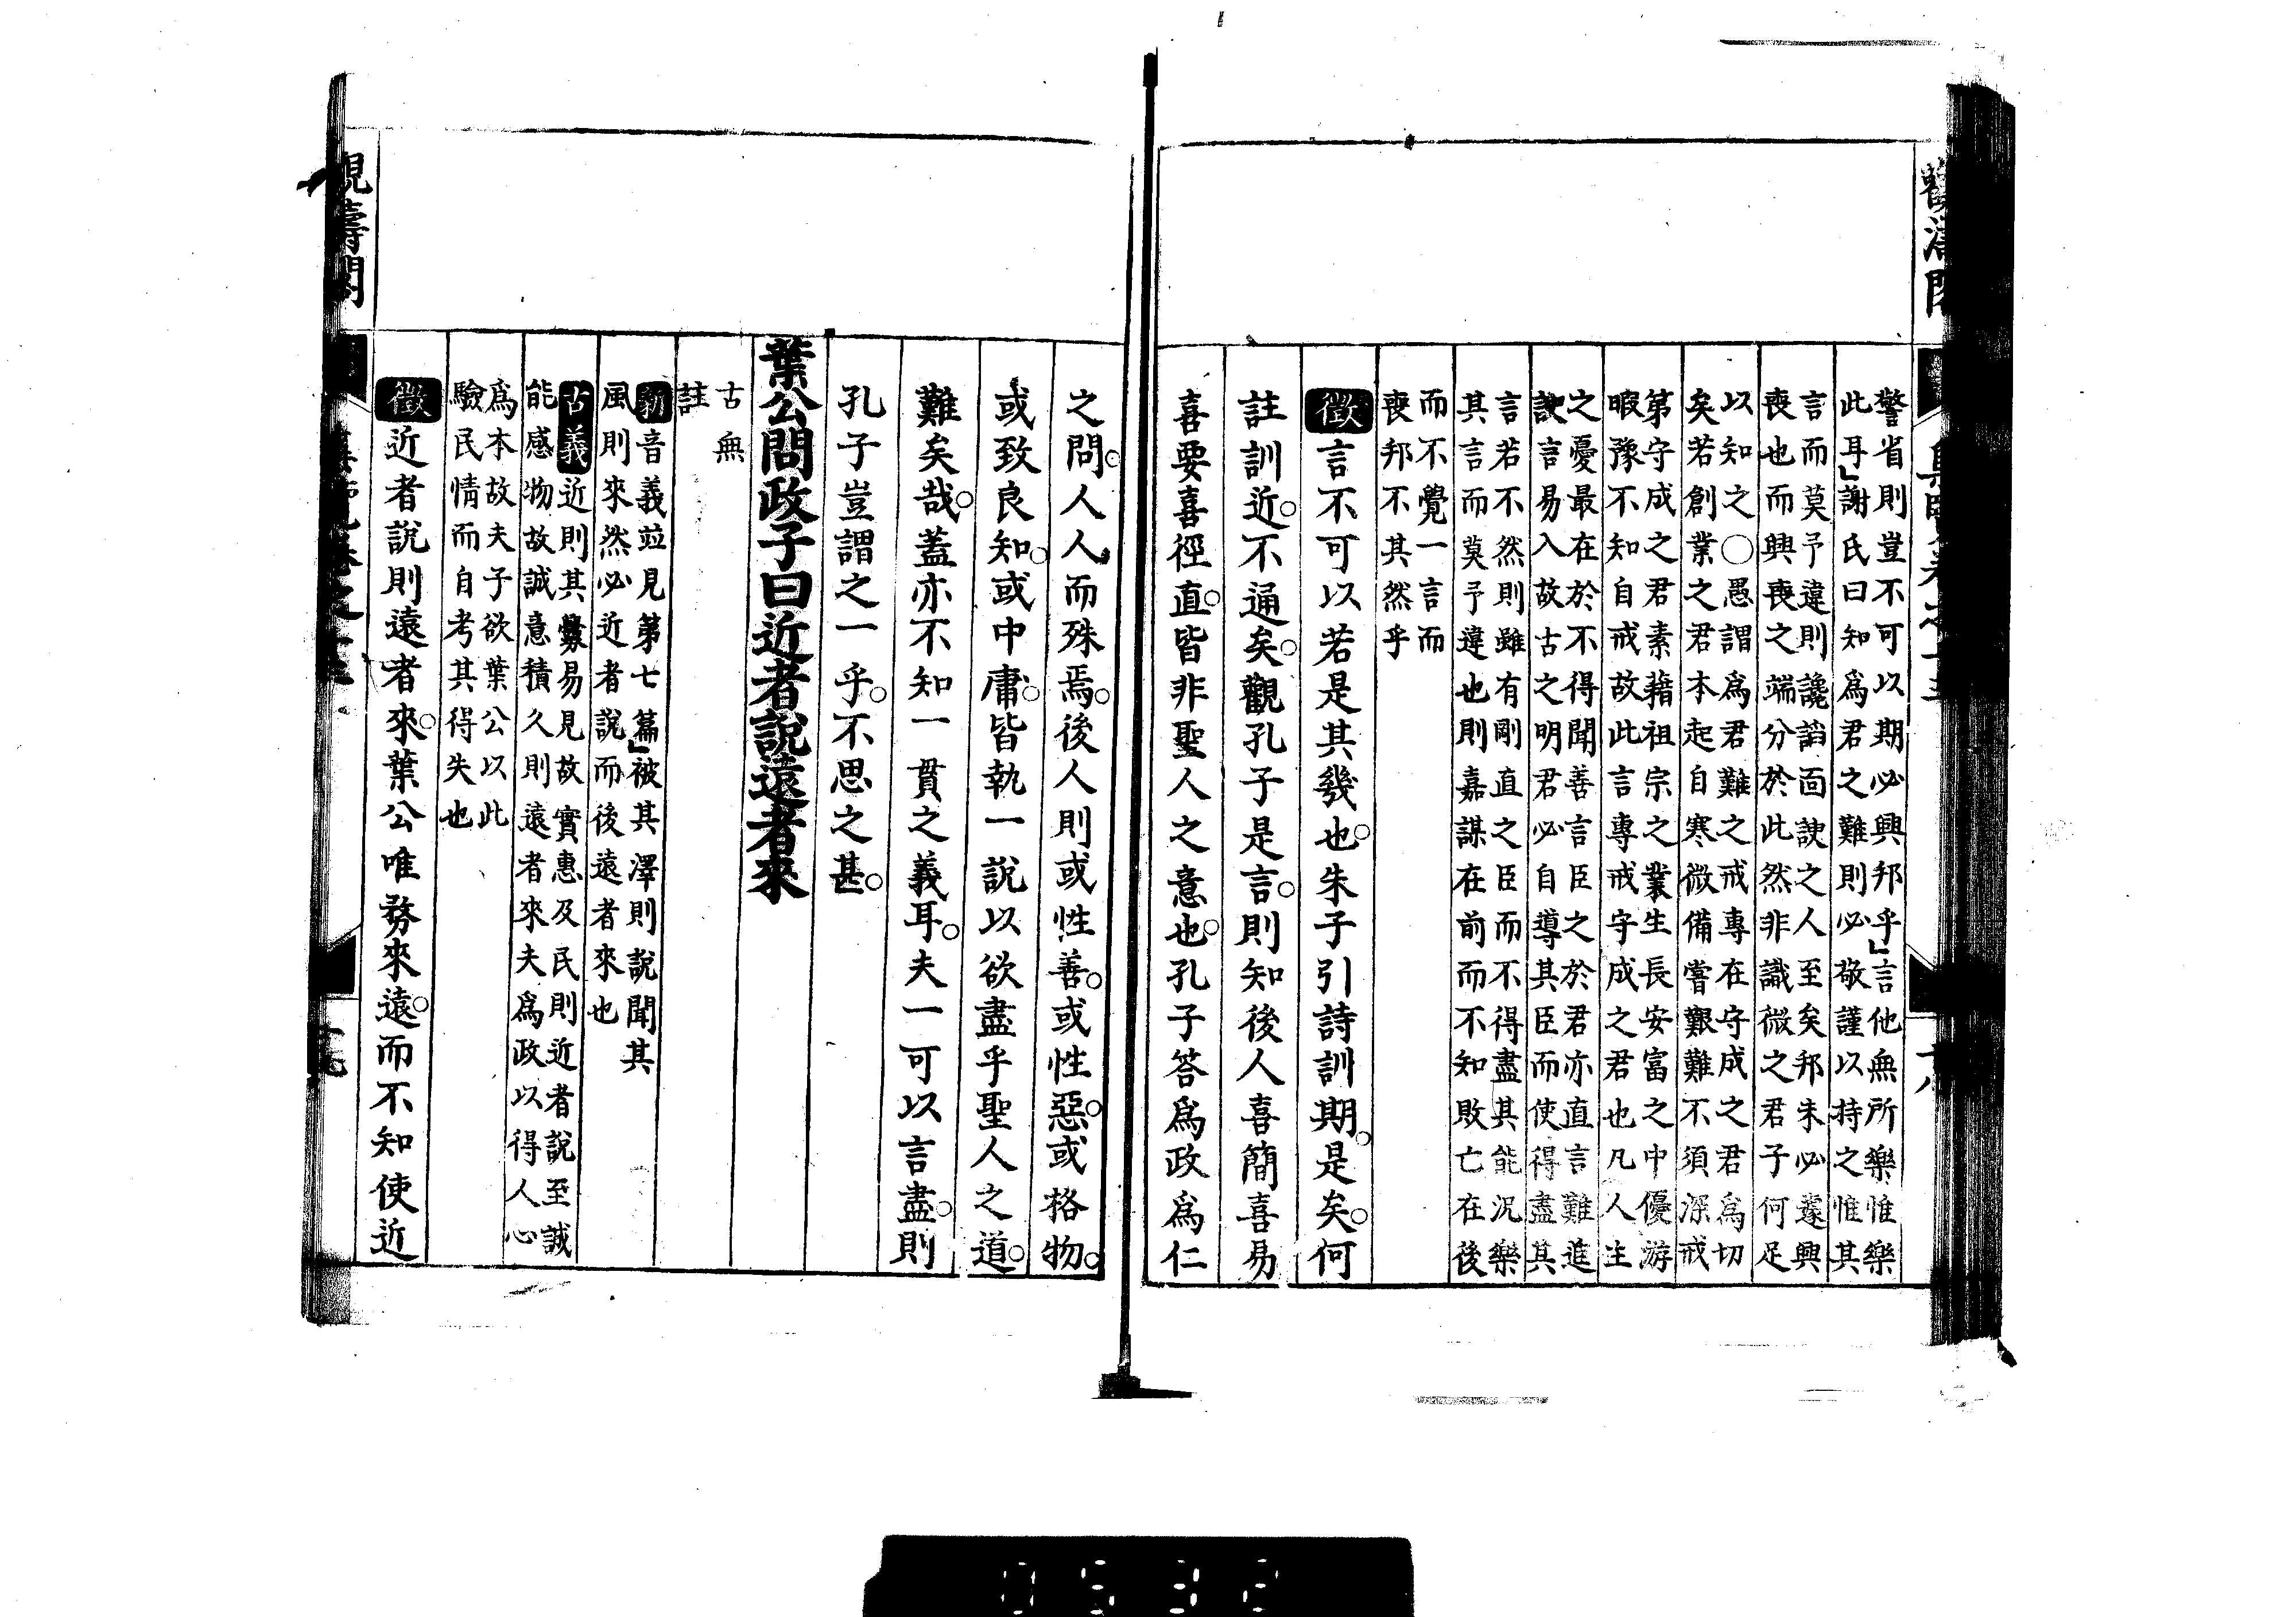 警省則豈不可以期必興邦乎」言他無所樂惟樂
此耳」謝氏曰知爲君之難則必敬謹以持之惟其
言而莫予違則讒諂面諛之人至矣邦未必遽興
喪也而興喪之端分於此然非識微之君子何足
以知之○愚謂爲君難之戒專在守成之君爲切
矣若創業之君本起自寒微備嘗艱難不須深戒
第守成之君素藉祖宗之業生長安富之中優游
暇豫不知自戒故此言專戒守成之君也凡人主
之憂最在於不得聞善言臣之於君亦直言難進
諛言易入故古之明君必自導其臣而使得盡其
言若不然則雖有剛直之臣而不得盡其能況樂
其言而莫予違也則嘉謀在前而不知敗亡在後
而不覺一言而
喪邦不其然乎
徵言不可以若是其幾也朱子引詩訓期是矣何
註訓近不通矣觀孔子是言則知後人喜簡喜易
喜要喜徑直皆非聖人之意也孔子答爲政爲仁
之問人人而殊焉後人則或性善或性惡或格物
或致良知或中庸皆執一說以欲盡乎聖人之道
難矣哉蓋亦不知一貫之義耳夫一可以言盡則
孔子豈謂之一乎不思之甚
葉公問政子曰近者說遠者來
古無
註
新音義竝見第七篇」被其澤則說聞其
風則來然必近者說而後遠者來也
古義近則其釁易見故實惠及民則近者說至誠
能感物故誠意積久則遠者來夫爲政以得人心
爲本故夫子欲葉公以此
驗民情而自考其得失也
徵近者說則遠者來葉公唯務來遠而不知使近
0532